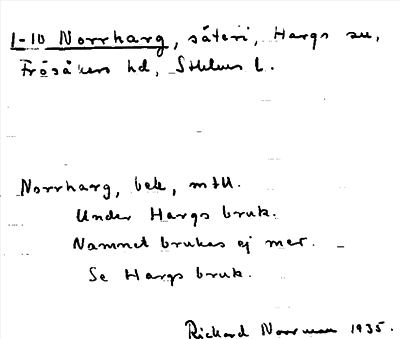 1-10 Norrharg, säteri, Hargs sn,
Frösåkers hd, Sthlms l.
Norrharg, bek, mtll.
Under Hargs bruk.
Namnet brukas ej mer. –
Se Hargs bruk.
Rickard Norrman 1935.